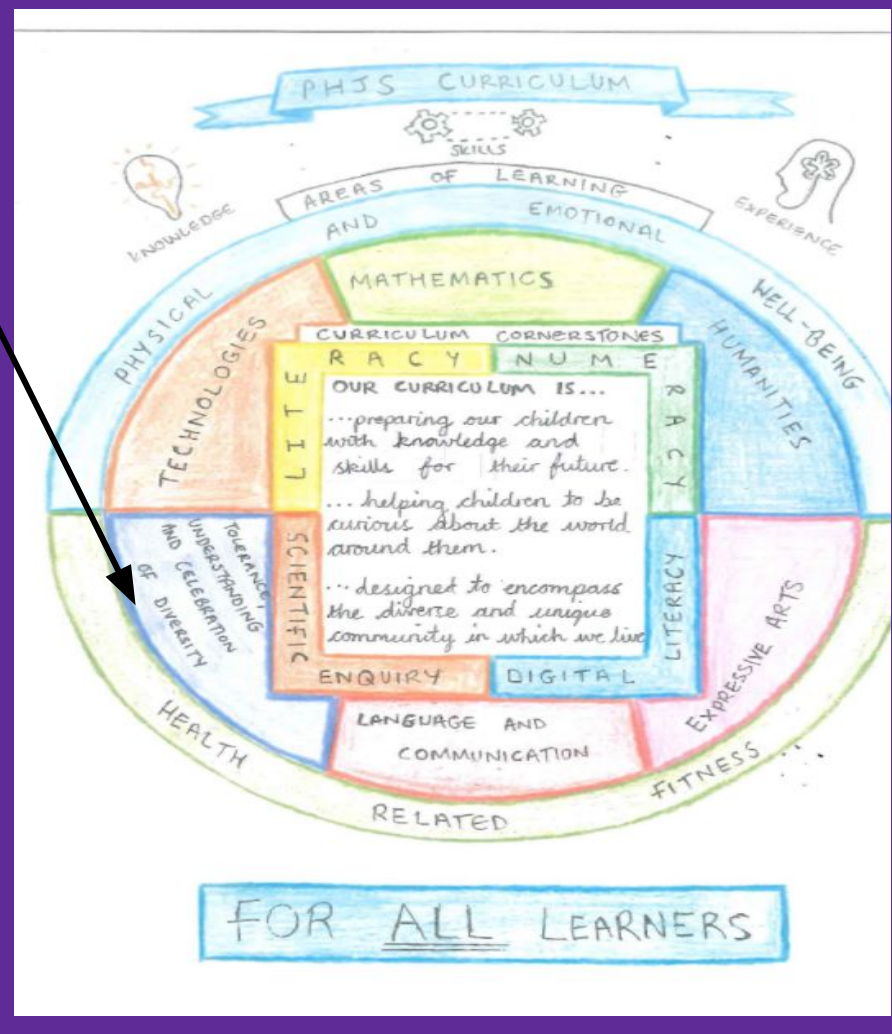 PHJS CURRICULUM
SKILLS
KNOWLEDGE
AREAS OF LEARNING
EXPERIENCE
PHYSICAL AND EMOTIONAL WELL-BEING
MATHEMATICS
TECHNOLOGIES
HUMANITIES
CURRICULUM CORNERSTONES
LITERACY
NUMERACY
OUR CURRICULUM IS...
...preparing our children
with knowledge and
skills for their future.
... helping children to be
curious about the world
around them.
... designed to encompass
the diverse and unique
community in which we live
SCIENTIFIC
ENQUIRY
DIGITAL
LITERACY
TOLERANCE,
UNDERSTANDING
AND CELEBRATION
OF DIVERSITY
EXPRESSIVE ARTS
LANGUAGE AND
COMMUNICATION
HEALTH RELATED FITNESS
FOR ALL LEARNERS